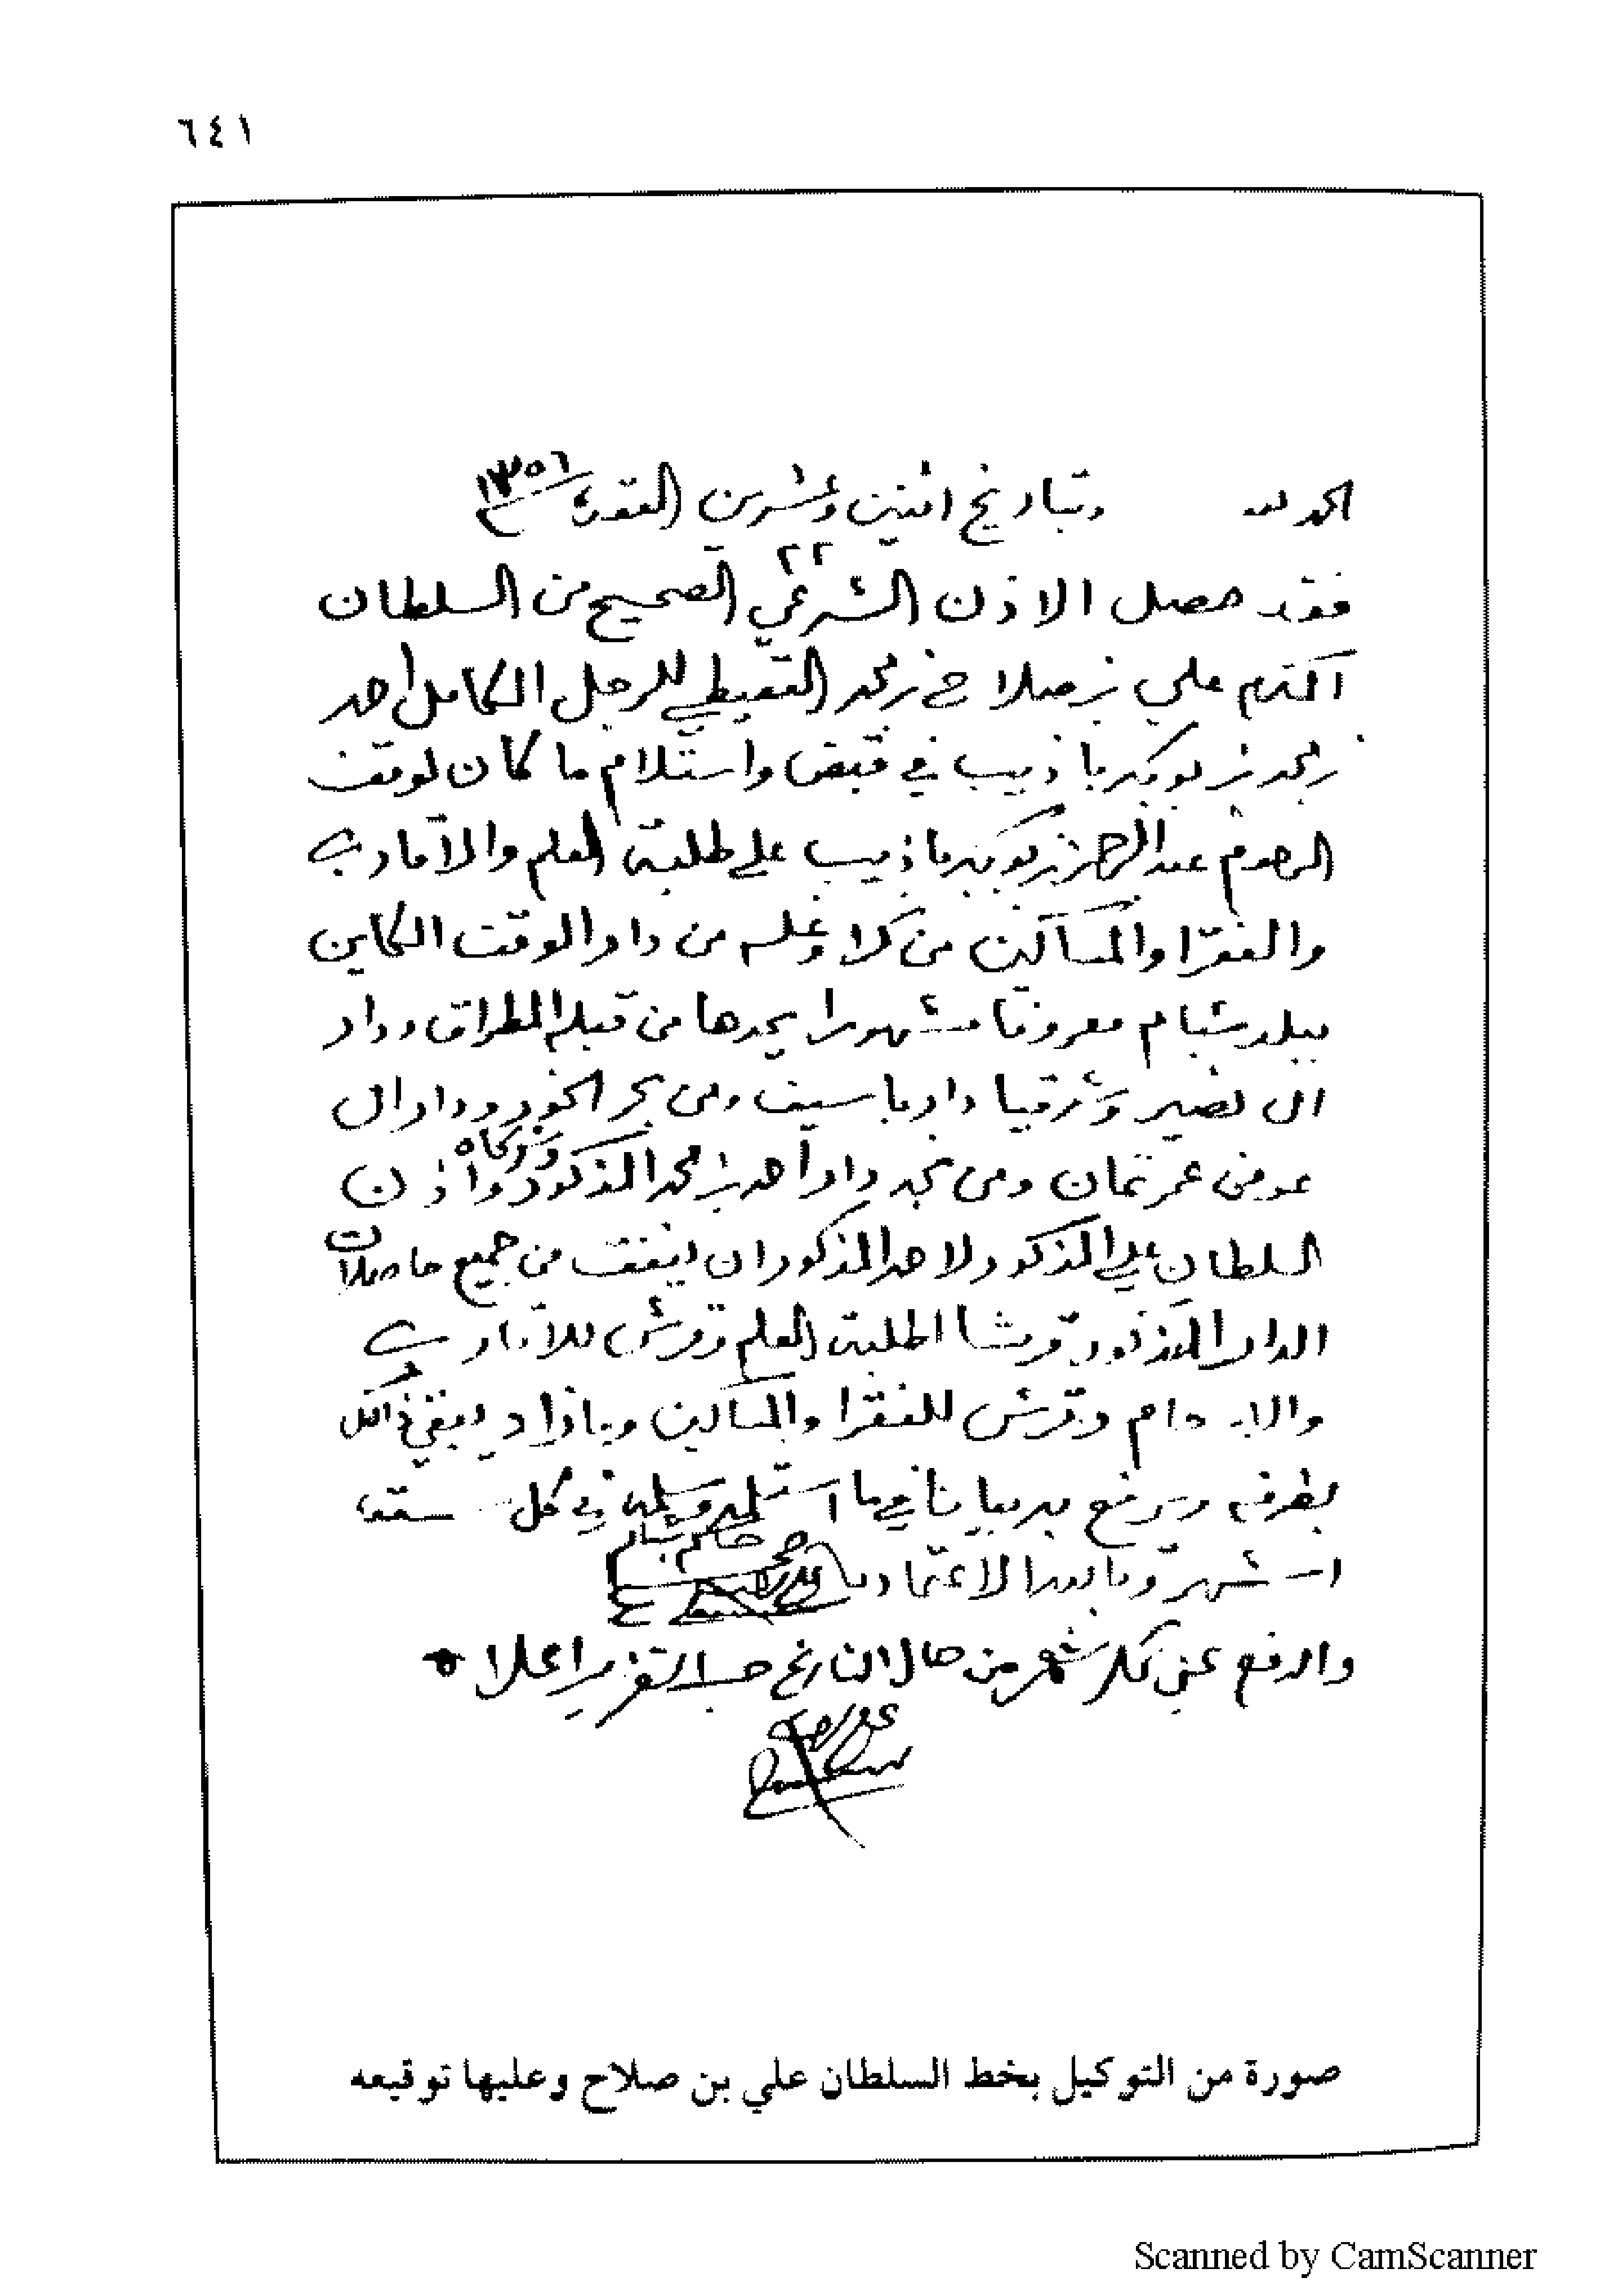 ٦٤١
الحمد لله وبتاريخ اثنين وعشرين القعدة ١٣٥٦
٢٢
فقد حصل الاذن الشرعي الصحيح من السلطان
علي بن صلاح بن محمد القعيطي للرجل الكامل احمد
بن محمد بن بوبكر باذيب في قبض واستلام ما كان لوقف
المرحوم عبدالرحمن بن بوبكر باذيب على طلبة العلم والاقارب
والفقرا والمساكين من كلا وغله من دار الوقف الكاين
ببلد شبام معروفا مشهورا يحدها من قبله المطراق ودار
ال نصير وشرقيا دار باسيف ومن بحر ودار ال
عوض عمر ومن نجد دار احمد بن محمد المذكور واذن
السلطان علي المذكور لاحمد المذكور ان ينفق من جميع حاصلات
الدار المذكور قرشا لطلبة العلم وقرش للاقارب
والارحام وقرش للفقرا والمساكين وما زاد يبقي ذالك
بطرفه ويرفع به بيانا في ما استلمه وسلمه في كل
شهر الاعتماد
حاكم شبام
والدفع عن كل شهر من حال التاريخ حسب التقرير اعلا
صورة من التوكيل بخط السلطان علي بن صلاح وعليها توقيعه
Scanned by CamScanner